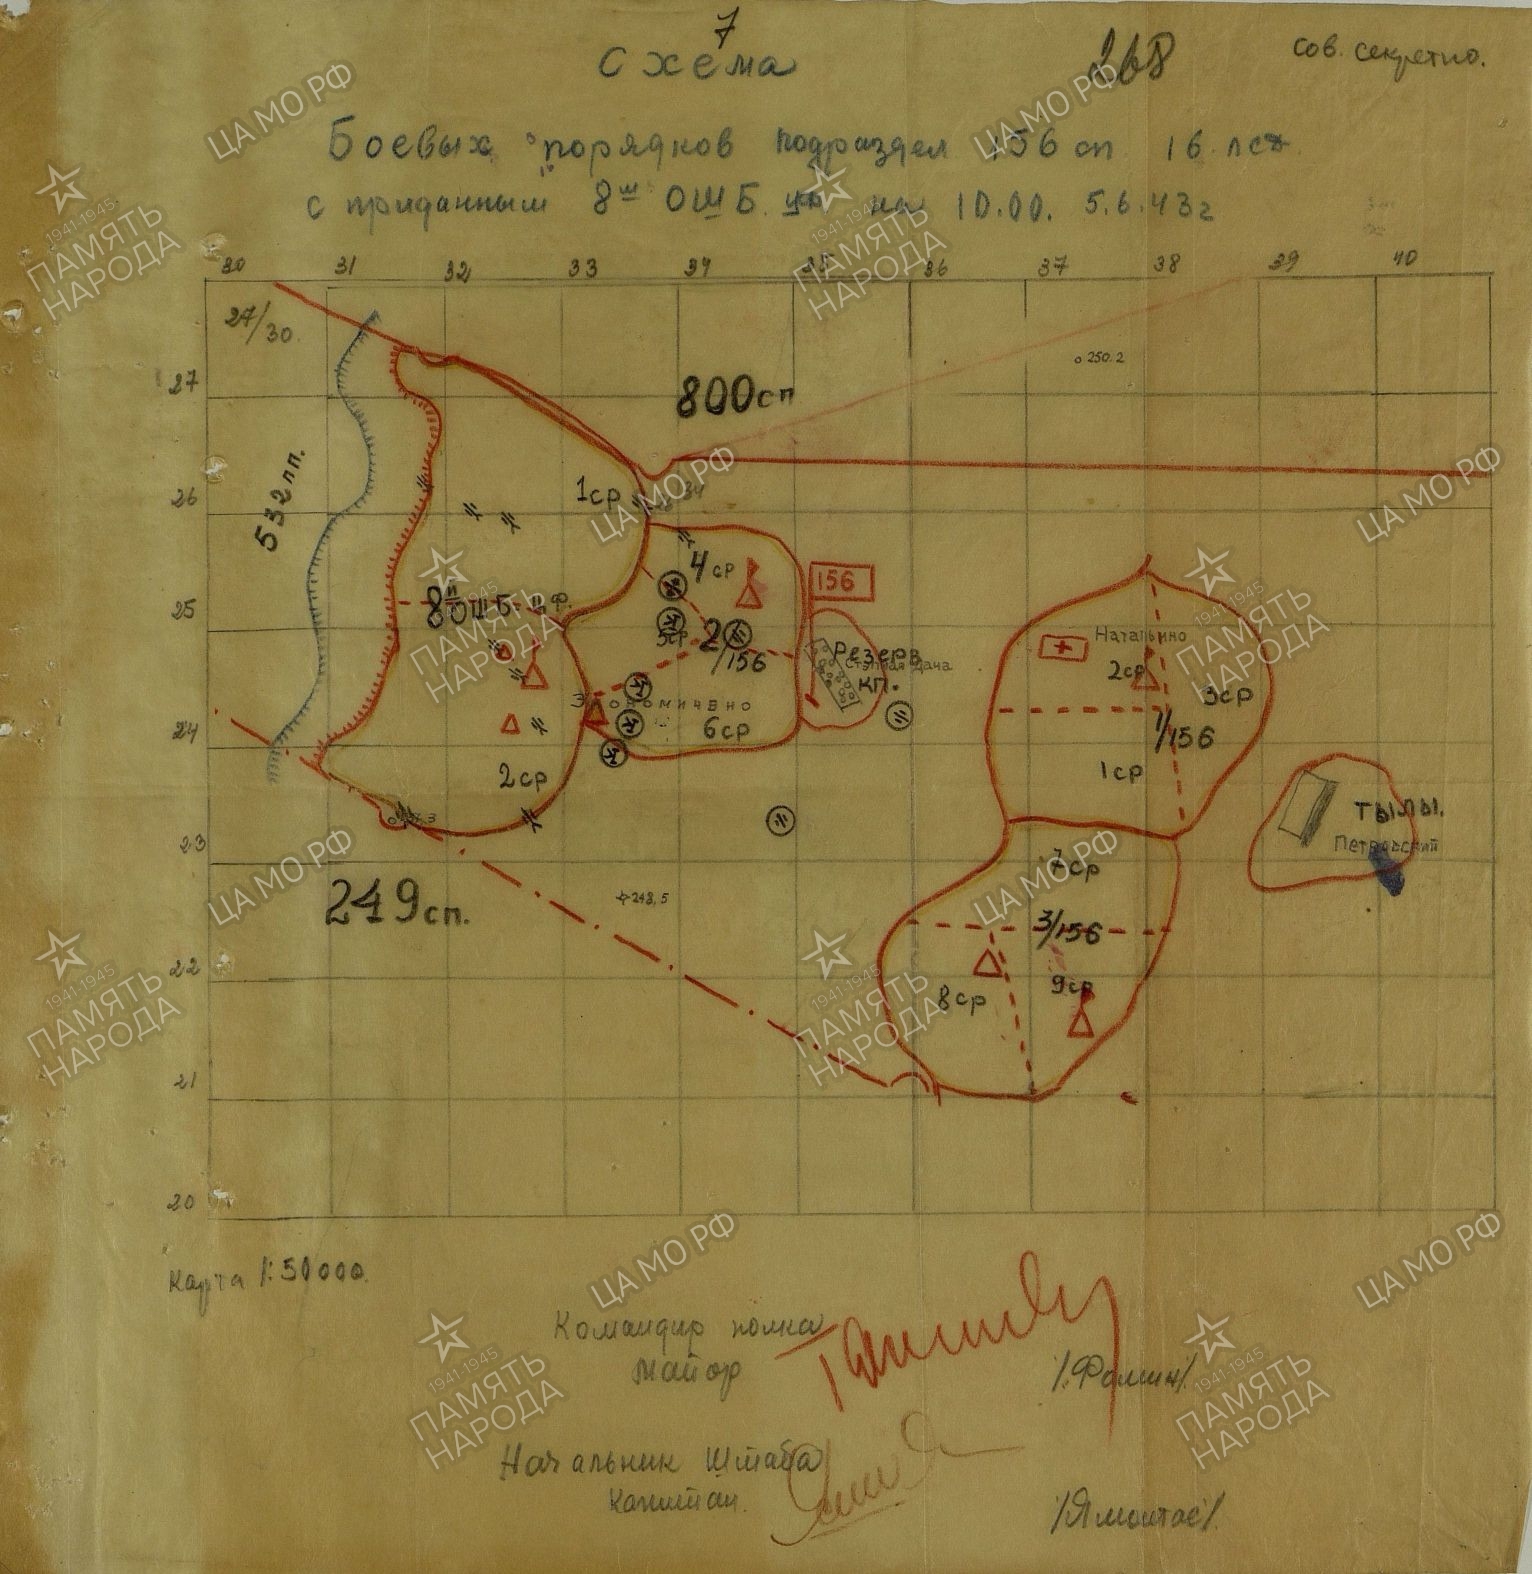 7
268
Сов. секретно.
Схема
Боевых порядков подраздел 156 сп 16 лсд
с приданным 8ш ОШБ на 10.00. 5.6.43г
30 31 32 33 34 35 36 37 38 39 40
27/30.
250.2
27
800сп
532пп.
26
1ср
4ср
156
25
8й ОШБ. ЦФ.
5ср
2/156
Резерв
Степная Дача
КП.
Натальино
2ср
3ср
Экономичено
24
6ср
1/156
2ср
1ср
тылы.
Петровский
23
7ср
249сп.
248,5
3/156
22
8ср
9ср
21
20
Карта 1:50000.
Командир полка
Майор
/.Фомин/.
Начальник Штаба
Капитан.
/Ямонтас/.
ЦАМО РФ
1941-1945
ПАМЯТЬ
НАРОДА